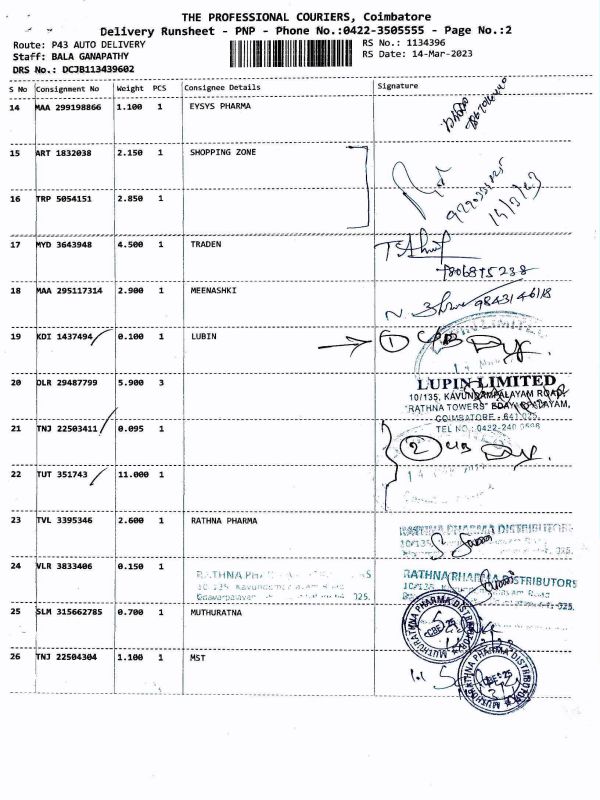 THE PROFESSIONAL COURIERS, Coimbatore
Delivery Runsheet - PNP - Phone No.:0422-3505555 - Page No.:2
Route: P43 AUTO DELIVERY
RS No.: 1134396
Staff: BALA GANAPATHY
RS Date: 14-Mar-2023
DRS No.: DCJB113439602
S No Consignment No Weight PCS Consignee Details Signature
14 MAA 299198866 1.100 1 EYSYS PHARMA
15 ART 1832038 2.150 1 SHOPPING ZONE
16 TRP 5054151 2.850 1
14/3/23
17 MYD 3643948 4.500 1 TRADEN
7806815238
18 MAA 295117314 2.900 1 MEENASHKI
9843146118
19 KDI 1437494 0.100 1 LUBIN
1
20 DLR 29487799 5.900 3
LUPIN LIMITED
10/135, KAVUNDAMPALAYAM ROAD,
"RATHNA TOWERS" EDAYARPALAYAM,
COIMBATORE - 641 025.
21 TNJ 22503411 0.095 1
TEL NO.: 0422-240
2
22 TUT 351743 11.000 1
23 TVL 3395346 2.600 1 RATHNA PHARMA
RATHNA PHARMA DISTRIBUTORS
10/135
025.
24 VLR 3833406 0.150 1
RATHNA PHARMA DISTRIBUTORS
10/135, Kavundampalayam Road
025.
25 SLM 315662785 0.700 1 MUTHURATNA
MUTHURATHNA PHARMA DISTRIBUTORS
CBE-25
26 TNJ 22504304 1.100 1 MST
MUTHURATHNA PHARMA DISTRIBUTORS
CBE-25